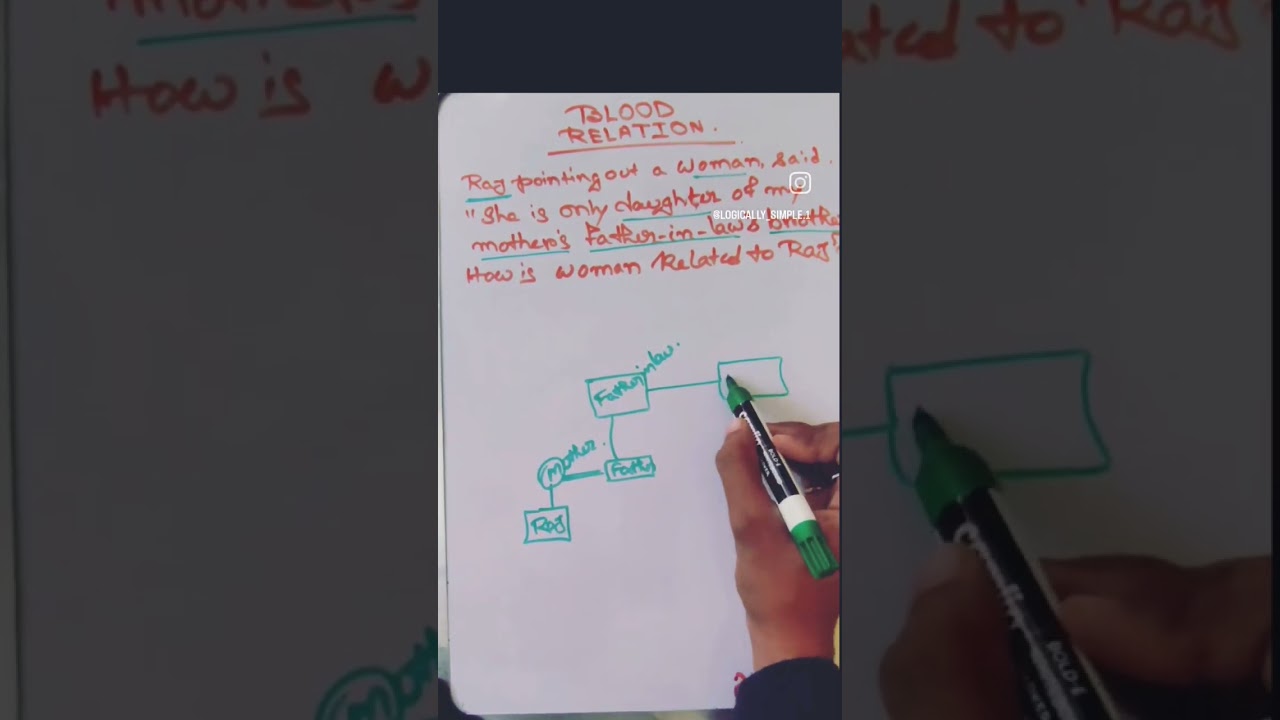 BLOOD
RELATION.
Raj pointing out a woman, said.
"She is only daughter of my
@LOGICALLY_SIMPLE.1
mother's Father-in-law's brother
How is woman Related to Raj?
Father in law.
Mother.
M
Father
Raj
How is w
ated to Raj
M
BOLD-E